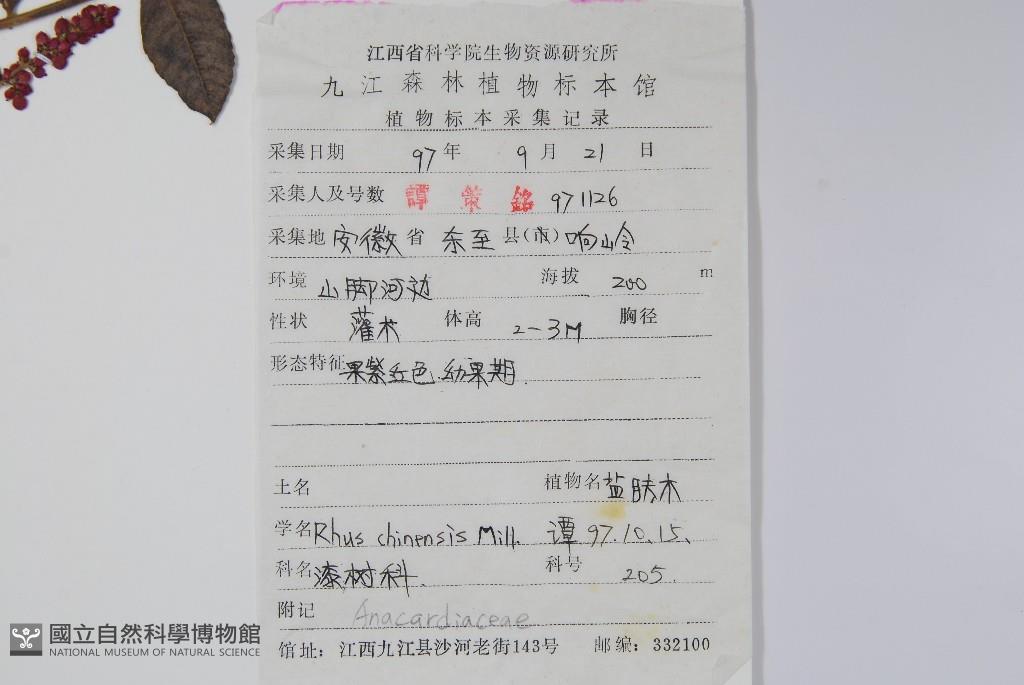 江西省科学院生物资源研究所
九江森林植物标本馆
植物标本采集记录
采集日期 97年 9月 21 日
采集人及号数 譚 策 銘 971126
采集地 安徽 省 东至 县(市) 响山岭
环境 山脚河边 海拔 200 m
性状 灌木 体高 2-3M 胸径
形态特征 果紫红色.幼果期.
土名 植物名 盐肤木
学名 Rhus chinensis Mill. 谭 97.10.15、
科名 漆树科. 科号 205.
附记 Anacardiaceae
馆址: 江西九江县沙河老街143号 邮编: 332100
國立自然科學博物館
NATIONAL MUSEUM OF NATURAL SCIENCE